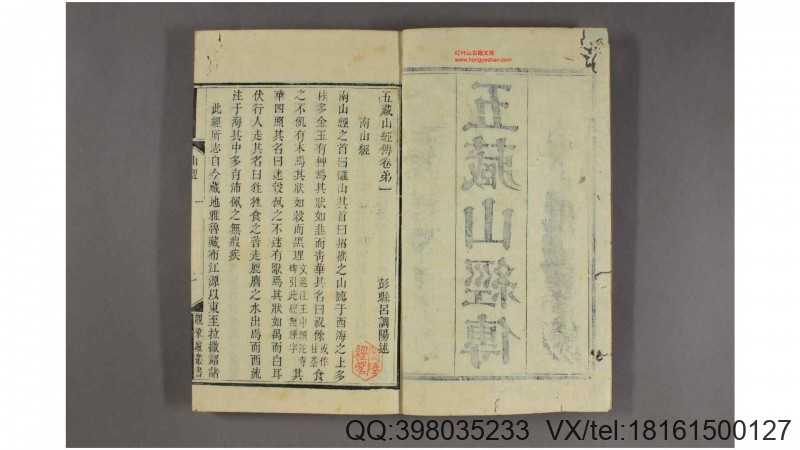 五藏山經傳卷第一
彭縣呂調陽述
南山經
南山經之首曰䧿山其首曰招搖之山臨于西海之上多
桂多金玉有艸焉其狀如韭而青華其名曰祝餘或作桂荼食
之不飢有木焉其狀如榖而黑理文選注王巾頭陀寺碑引此經無理字其
華四照其名曰迷榖佩之不迷有獸焉其狀如禺而白耳
伏行人走其名曰狌狌食之善走麗𪊨之水出焉而西流
注于海其中多育沛佩之無瘕疾
此經所志自今藏地雅魯藏布江源以東至拉撒詔諸
山經 一
觀象廬叢書
五藏山經傳
红叶山古籍文库
www.hongyeshan.com
QQ:398035233 VX/tel:18161500127